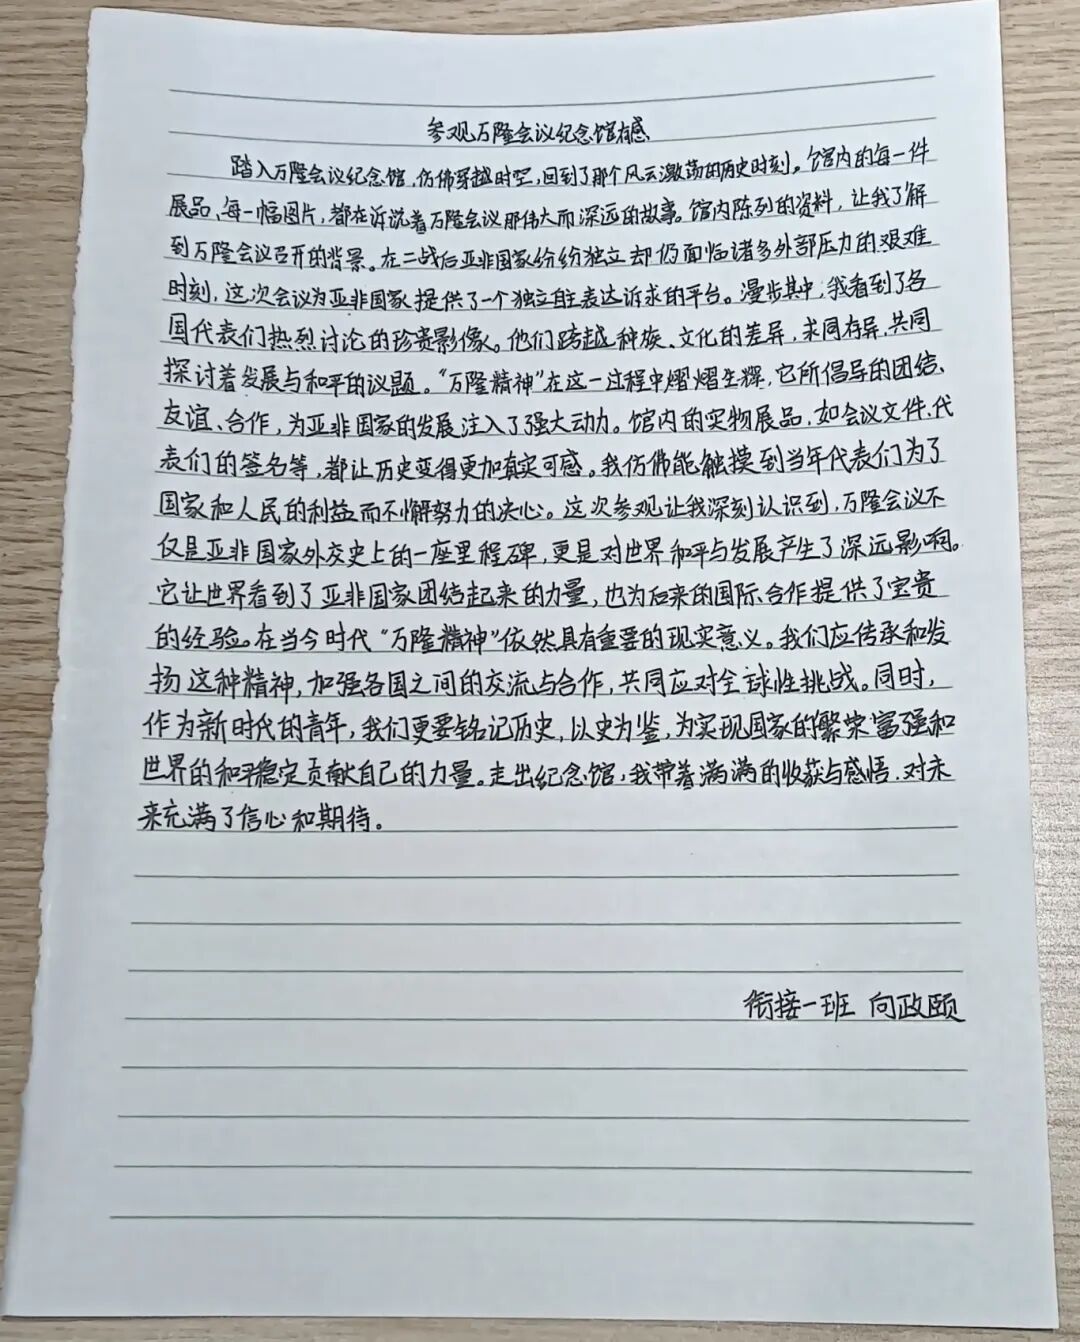 参观万隆会议纪念馆有感
踏入万隆会议纪念馆，仿佛穿越时空，回到了那个风云激荡的历史时刻。馆内的每一件
展品、每一幅图片，都在诉说着万隆会议那伟大而深远的故事。馆内陈列的资料，让我了解
到万隆会议召开的背景。在二战后亚非国家纷纷独立却仍面临诸多外部压力的艰难
时刻，这次会议为亚非国家提供了一个独立自主表达诉求的平台。漫步其中，我看到了各
国代表们热烈讨论的珍贵影像。他们跨越种族、文化的差异，求同存异，共同
探讨着发展与和平的议题。“万隆精神”在这一过程中熠熠生辉，它所倡导的团结、
友谊、合作，为亚非国家的发展注入了强大动力。馆内的实物展品，如会议文件、代
表们的签名等，都让历史变得更加真实可感。我仿佛能触摸到当年代表们为了
国家和人民的利益而不懈努力的决心。这次参观让我深刻认识到，万隆会议不
仅是亚非国家外交史上的一座里程碑，更是对世界和平与发展产生了深远影响。
它让世界看到了亚非国家团结起来的力量，也为后来的国际合作提供了宝贵
的经验。在当今时代“万隆精神”依然具有重要的现实意义。我们应传承和发
扬这种精神，加强各国之间的交流与合作，共同应对全球性挑战。同时，
作为新时代的青年，我们更要铭记历史，以史为鉴，为实现国家的繁荣富强和
世界的和平稳定贡献自己的力量。走出纪念馆，我带着满满的收获与感悟，对未
来充满了信心和期待。
衔接一班 向政颐